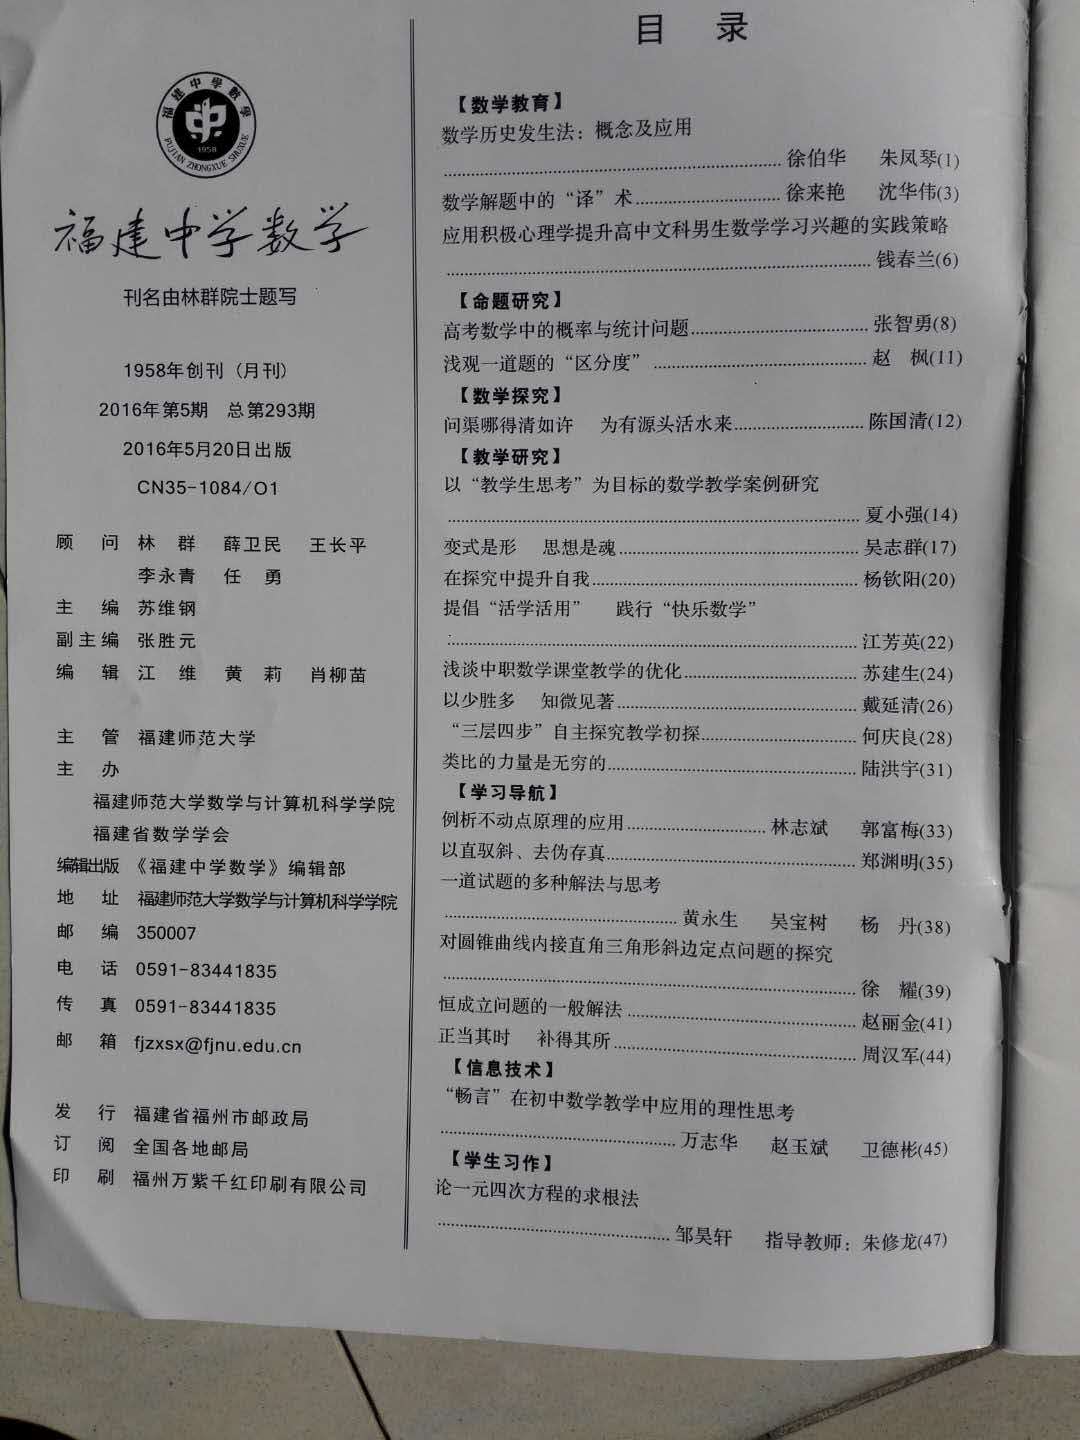 福建中學數學
FUJIAN ZHONGXUE SHUXUE
1958
福建中学数学
刊名由林群院士题写
1958年创刊（月刊）
2016年第5期 总第293期
2016年5月20日出版
CN35-1084/O1
顾 问 林 群 薛卫民 王长平
李永青 任 勇
主 编 苏维钢
副主编 张胜元
编 辑 江 维 黄 莉 肖柳苗
主 管 福建师范大学
主 办
福建师范大学数学与计算机科学学院
福建省数学学会
编辑出版 《福建中学数学》编辑部
地 址 福建师范大学数学与计算机科学学院
邮 编 350007
电 话 0591-83441835
传 真 0591-83441835
邮 箱 fjzxsx@fjnu.edu.cn
发 行 福建省福州市邮政局
订 阅 全国各地邮局
印 刷 福州万紫千红印刷有限公司
目 录
【数学教育】
数学历史发生法：概念及应用
徐伯华 朱凤琴(1)
数学解题中的“译”术 徐来艳 沈华伟(3)
应用积极心理学提升高中文科男生数学学习兴趣的实践策略
钱春兰(6)
【命题研究】
高考数学中的概率与统计问题 张智勇(8)
浅观一道题的“区分度” 赵 枫(11)
【数学探究】
问渠哪得清如许 为有源头活水来 陈国清(12)
【教学研究】
以“教学生思考”为目标的数学教学案例研究
夏小强(14)
变式是形 思想是魂 吴志群(17)
在探究中提升自我 杨钦阳(20)
提倡“活学活用” 践行“快乐数学”
江芳英(22)
浅谈中职数学课堂教学的优化 苏建生(24)
以少胜多 知微见著 戴延清(26)
“三层四步”自主探究教学初探 何庆良(28)
类比的力量是无穷的 陆洪宇(31)
【学习导航】
例析不动点原理的应用 林志斌 郭富梅(33)
以直驭斜、去伪存真 郑渊明(35)
一道试题的多种解法与思考
黄永生 吴宝树 杨 丹(38)
对圆锥曲线内接直角三角形斜边定点问题的探究
徐 耀(39)
恒成立问题的一般解法 赵丽金(41)
正当其时 补得其所 周汉军(44)
【信息技术】
“畅言”在初中数学教学中应用的理性思考
万志华 赵玉斌 卫德彬(45)
【学生习作】
论一元四次方程的求根法
邹昊轩 指导教师：朱修龙(47)